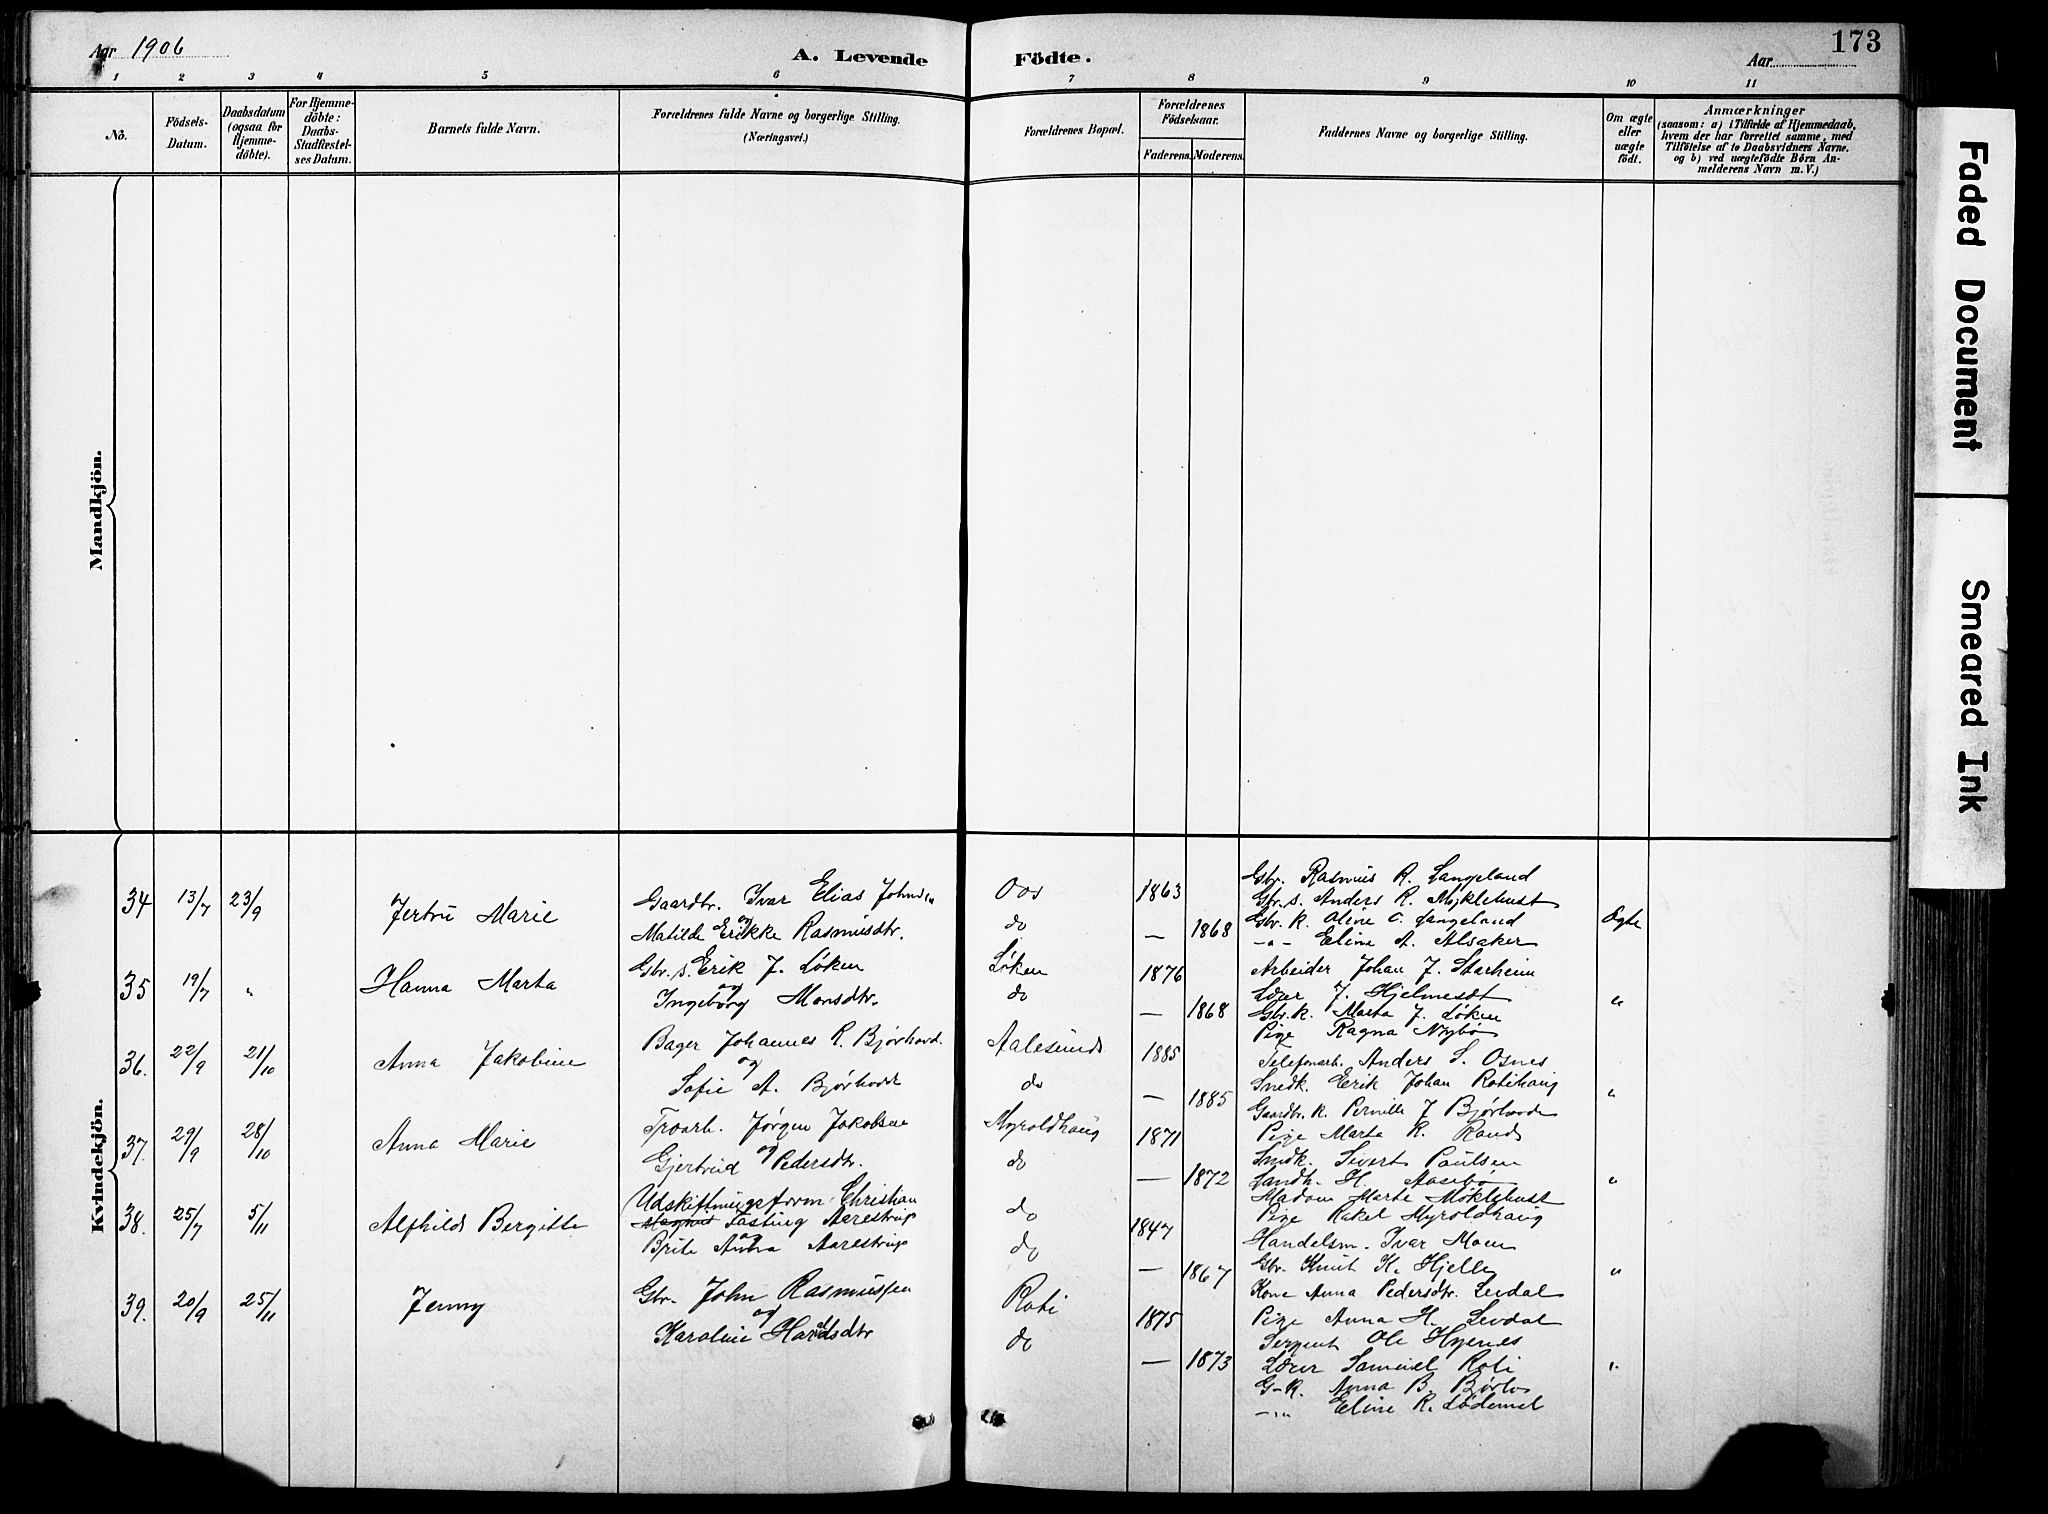 Aar 1906
A. Levende
Födte.
Aar
173
1 2 3 4 5 6 7 8 9 10 11
No.
Födsels-
Datum.
Daabsdatum
(ogsaa for
Hjemme-
döbte).
For Hjemme-
döbte:
Daabs-
Stadfæstel-
ses Datum.
Barnets fulde Navn.
Forældrenes fulde Navne og borgerlige Stilling.
(Næringsvei.)
Forældrenes Bopæl.
Forældrenes
Födselsaar.
Faderens.
Moderens.
Faddernes Navne og borgerlige Stilling.
Om ægte
eller
uægte
født.
Anmærkninger
(saasom: a) i Tilfælde af Hjemmedaab,
hvem der har forrettet samme, med
Tilföielse af to Daabsvidners Navne.
og b) ved uægtefödte Börn An-
melderens Navn m.V.)
Mandkjön.
Kvindekjön.
34 13/7 23/9
Jertrü Marie
Gaardbr. Ivar Elias Johnsen
og
Matilde Erikke Rasmusdtr.
Oos
do
1863
— 1868
Gbr. Rasmus R. Langeland
Gbr. s. Anders R. Myklebust
Gbr. k. Oline O. Langeland
-"- Eline A. Alsaker
Ægte
35 19/7 "
Hanna Marta
Gbr. s. Erik J. Løken
og
Ingeborg Monsdtr.
Løken
do
1876
— 1868
Arbeider Johan J. Starheim
Lærer J. Hjelmeset
Gbr. k. Marta J. Løken
Pige Ragna Nybø
"
36. 22/9 21/10
Anna Jakobine
Bager Johannes R. Bjørhovd
og
Sofie A. Bjørhovde
Aalesund
do
1885
— 1885
Telefonarb. Anders S. Osnes
Snedk. Erik Johan Rotihaug
Gaardbr. k. Pernille J Bjørhovde
Pige Marta R. Rand
"
37. 29/9 28/10
Anna Marie
Jørgen Jakobsen
og
Gjertrud Pedersdtr.
Myroldhaug
do
1871
— 1872
Snedk. Sivert Paulsen
Landh. H. Aasebø
Madam Marte Møklebust
Pige Rakel Myroldhaug
"
38. 25/7 5/11
Alfhild Bergitte
Udskiftningsform. Christian
Fasting Aarestrup
og
Brite Anna Aarestrup
do
do
1847
— 1867
Handelsm. Ivar Moen
Gbr. Knut K. Hjelle
Kone Anna Pedersdtr. Levdal
Pige Anna H. Levdal
"
39. 20/9 25/11
Jenny
Gbr. John Rasmussen
og
Karoline Hansdtr
Roti
do
1875
— 1873
Sergent Ole Hopenes
Lærer Samuel Roti
G-k. Anna B. Bjørlo
-"- Eline R. Lødemel
"
Faded Document
Smeared Ink